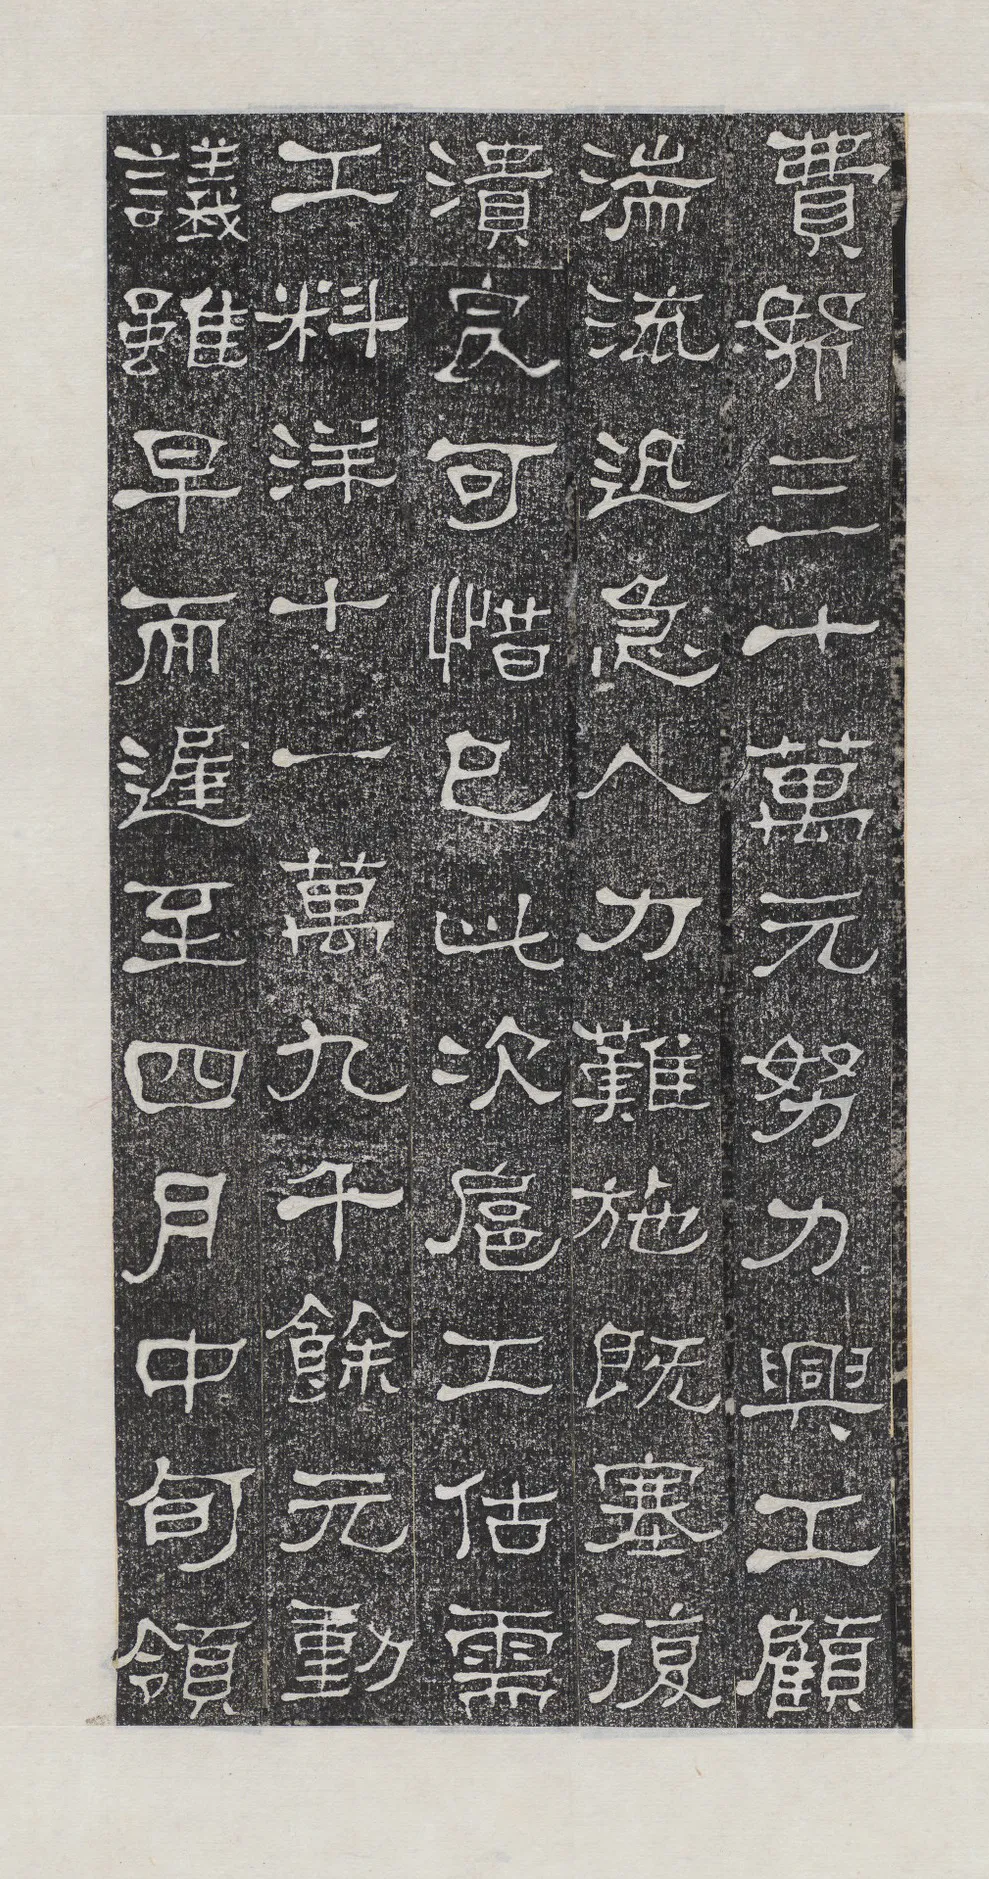 費帑三十萬元努力興工顧
湍流迅急人力難施既塞復
潰良可惜已此次扈工估需
工料洋十一萬九千餘元動
議雖早而遲至四月中旬領